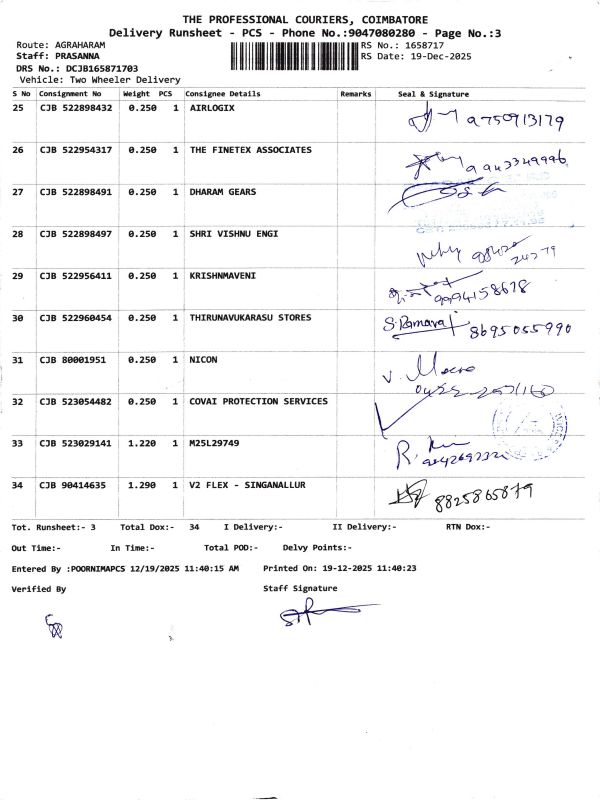 THE PROFESSIONAL COURIERS, COIMBATORE
Delivery Runsheet - PCS - Phone No.:9047080280 - Page No.:3
Route: AGRAHARAM RS No.: 1658717
Staff: PRASANNA RS Date: 19-Dec-2025
DRS No.: DCJB165871703
Vehicle: Two Wheeler Delivery
S No Consignment No Weight PCS Consignee Details Remarks Seal & Signature
25 CJB 522898432 0.250 1 AIRLOGIX 9750913179
26 CJB 522954317 0.250 1 THE FINETEX ASSOCIATES 9943349996
27 CJB 522898491 0.250 1 DHARAM GEARS
28 CJB 522898497 0.250 1 SHRI VISHNU ENGI
29 CJB 522956411 0.250 1 KRISHNMAVENI 9994158678
30 CJB 522960454 0.250 1 THIRUNAVUKARASU STORES 8695055990
31 CJB 80001951 0.250 1 NICON
32 CJB 523054482 0.250 1 COVAI PROTECTION SERVICES
33 CJB 523029141 1.220 1 M25L29749
34 CJB 90414635 1.290 1 V2 FLEX - SINGANALLUR 8825865879
Tot. Runsheet:- 3 Total Dox:- 34 I Delivery:- II Delivery:- RTN Dox:-
Out Time:- In Time:- Total POD:- Delvy Points:-
Entered By :POORNIMAPCS 12/19/2025 11:40:15 AM Printed On: 19-12-2025 11:40:23
Verified By Staff Signature